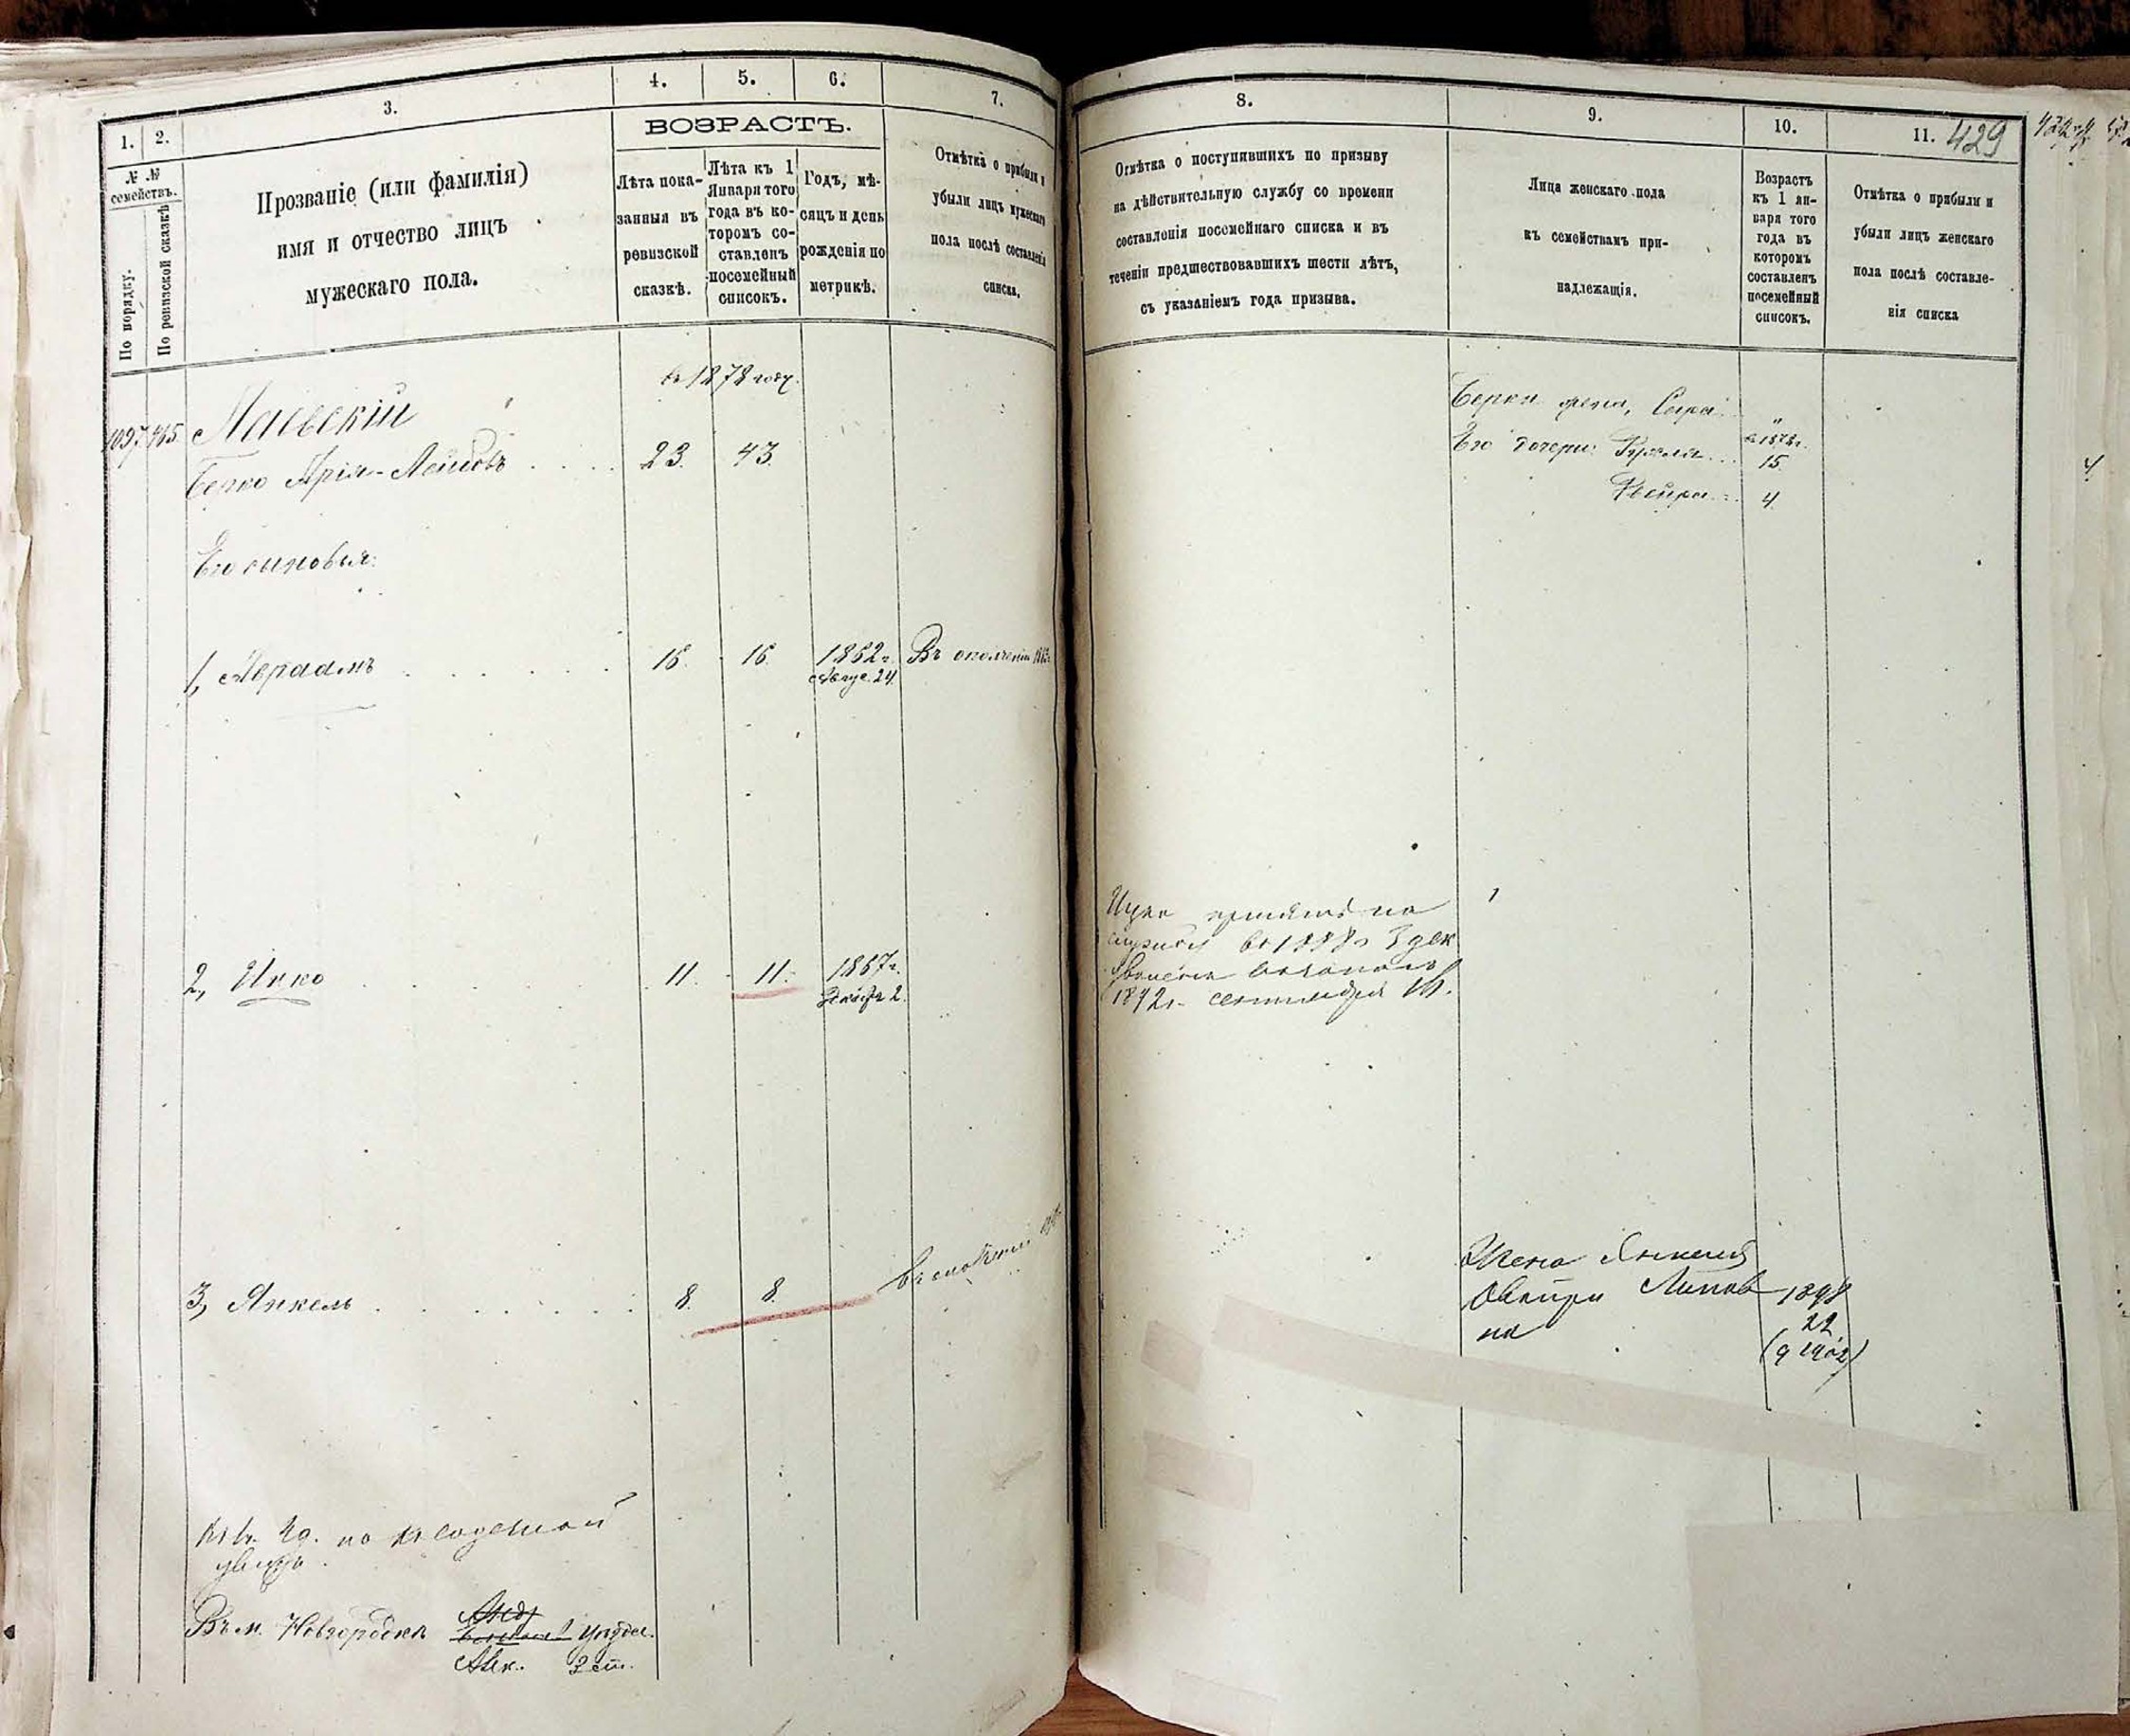 1.
2.
3.
4.
5.
6.
7.
№ №
семействъ.
По порядку.
По ревизской сказкѣ
Прозваніе (или фамилія)
имя и отчество лицъ
мужескаго пола.
ВОЗРАСТЪ.
Лѣта пока-
занныя въ
ревизской
сказкѣ.
Лѣта къ 1
Января того
года въ ко-
торомъ со-
ставленъ
посемейный
списокъ.
Годъ, мѣ-
сяцъ и день
рожденія по
метрикѣ.
Отмѣтка о прибыли и
убыли лицъ мужескаго
пола послѣ составленія
списка.
въ 1878 году.
1097 465
Маевскій
Берко Арія-Лейбовъ 23. 43.
Его сыновья:
1, Абраамъ 16. 16. 1862 г. Въ ополченіи
Август. 24.
2, Ицко 11. 11. 1867 г.
Декабр. 2.
3, Янкель 8. 8.
по
улицѣ.
Въ м. Новгородкѣ
Алек. 3 ст.
8.
9.
10.
11.
429
Отмѣтка о поступившихъ по призыву
на дѣйствительную службу со времени
составленія посемейнаго списка и въ
теченіи предшествовавшихъ шести лѣтъ,
съ указаніемъ года призыва.
Лица женскаго пола
къ семействамъ при-
надлежащія.
Возрастъ
къ 1 ян-
варя того
года въ
которомъ
составленъ
посемейный
списокъ.
Отмѣтка о прибыли и
убыли лицъ женскаго
пола послѣ составле-
нія списка
Берки жена, Сора "
въ 1878 г.
Его дочери: 15
4
Ицко принятъ на
службу въ 1888 г. 3 дек.
1892 г. сентября
Жена Янкеля
Двейра Липов- 1898
на 22
(9 1902)